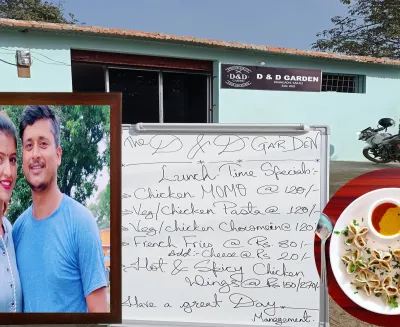 D&D
D & D GARDEN
The D & D GARDEN
Lunch Time Specials:-
Chicken MOMO @ 120/-
Veg/Chicken Pasta @ 120/-
Veg/chicken Chowmein @ 120
French Fries @ Rs. 80/-
Add:- Cheese @ Rs 20/-
Hot & Spicy Chicken
Wings @ Rs 150/270/-
Have a great Day.
Management.